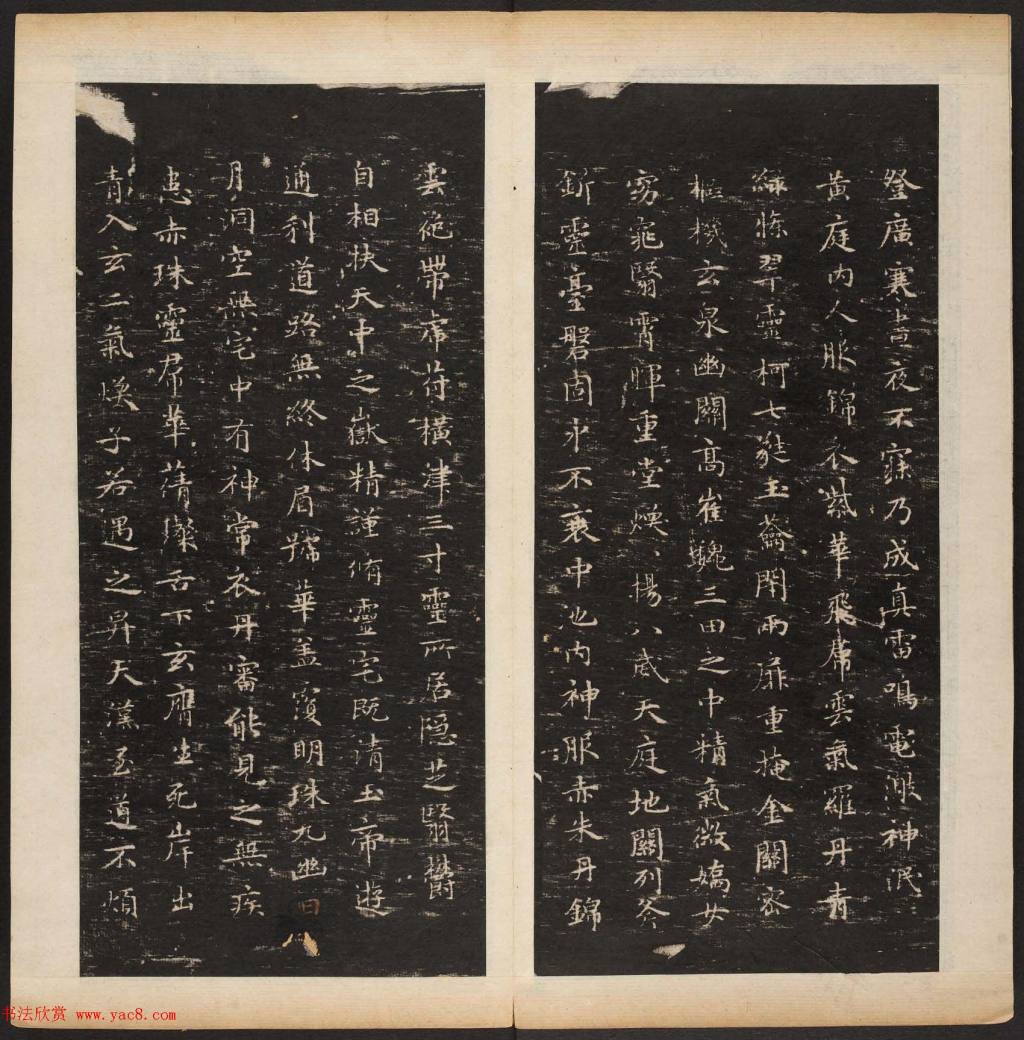 登廣寒晝夜不寐乃成真雷鳴電激神泯泯
黃庭内人服錦衣紫華飛帬雲氣羅丹青
緑條翠靈柯七蕤玉蘥閇兩扉重掩金關密
樞機玄泉幽關髙崔巍三田之中精氣微嬌女
窈窕翳霄暉重堂煥煥揚八威天庭地關列斧
釿靈臺磐固永不衰中池内神服赤朱丹錦
雲袍帶虎符橫津三寸靈所居隱芝翳欝
自相扶天中之嶽精謹脩靈宅既清玉帝遊
通利道路無終休眉號華盖覆明珠九幽日
月洞空無宅中有神常衣丹審能見之無疾
患赤珠靈帬華蒨璨舌下玄膺生死岸出
青入玄二氣煥子若遇之昇天漢至道不煩
书法欣赏 www.yac8.com